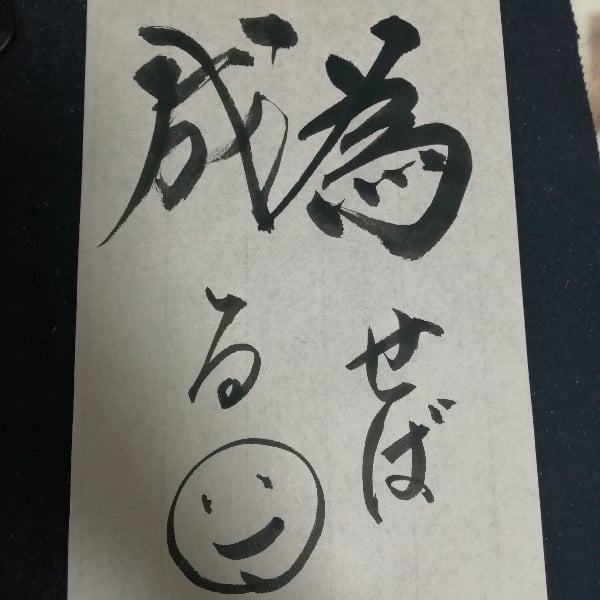 為せば
成る